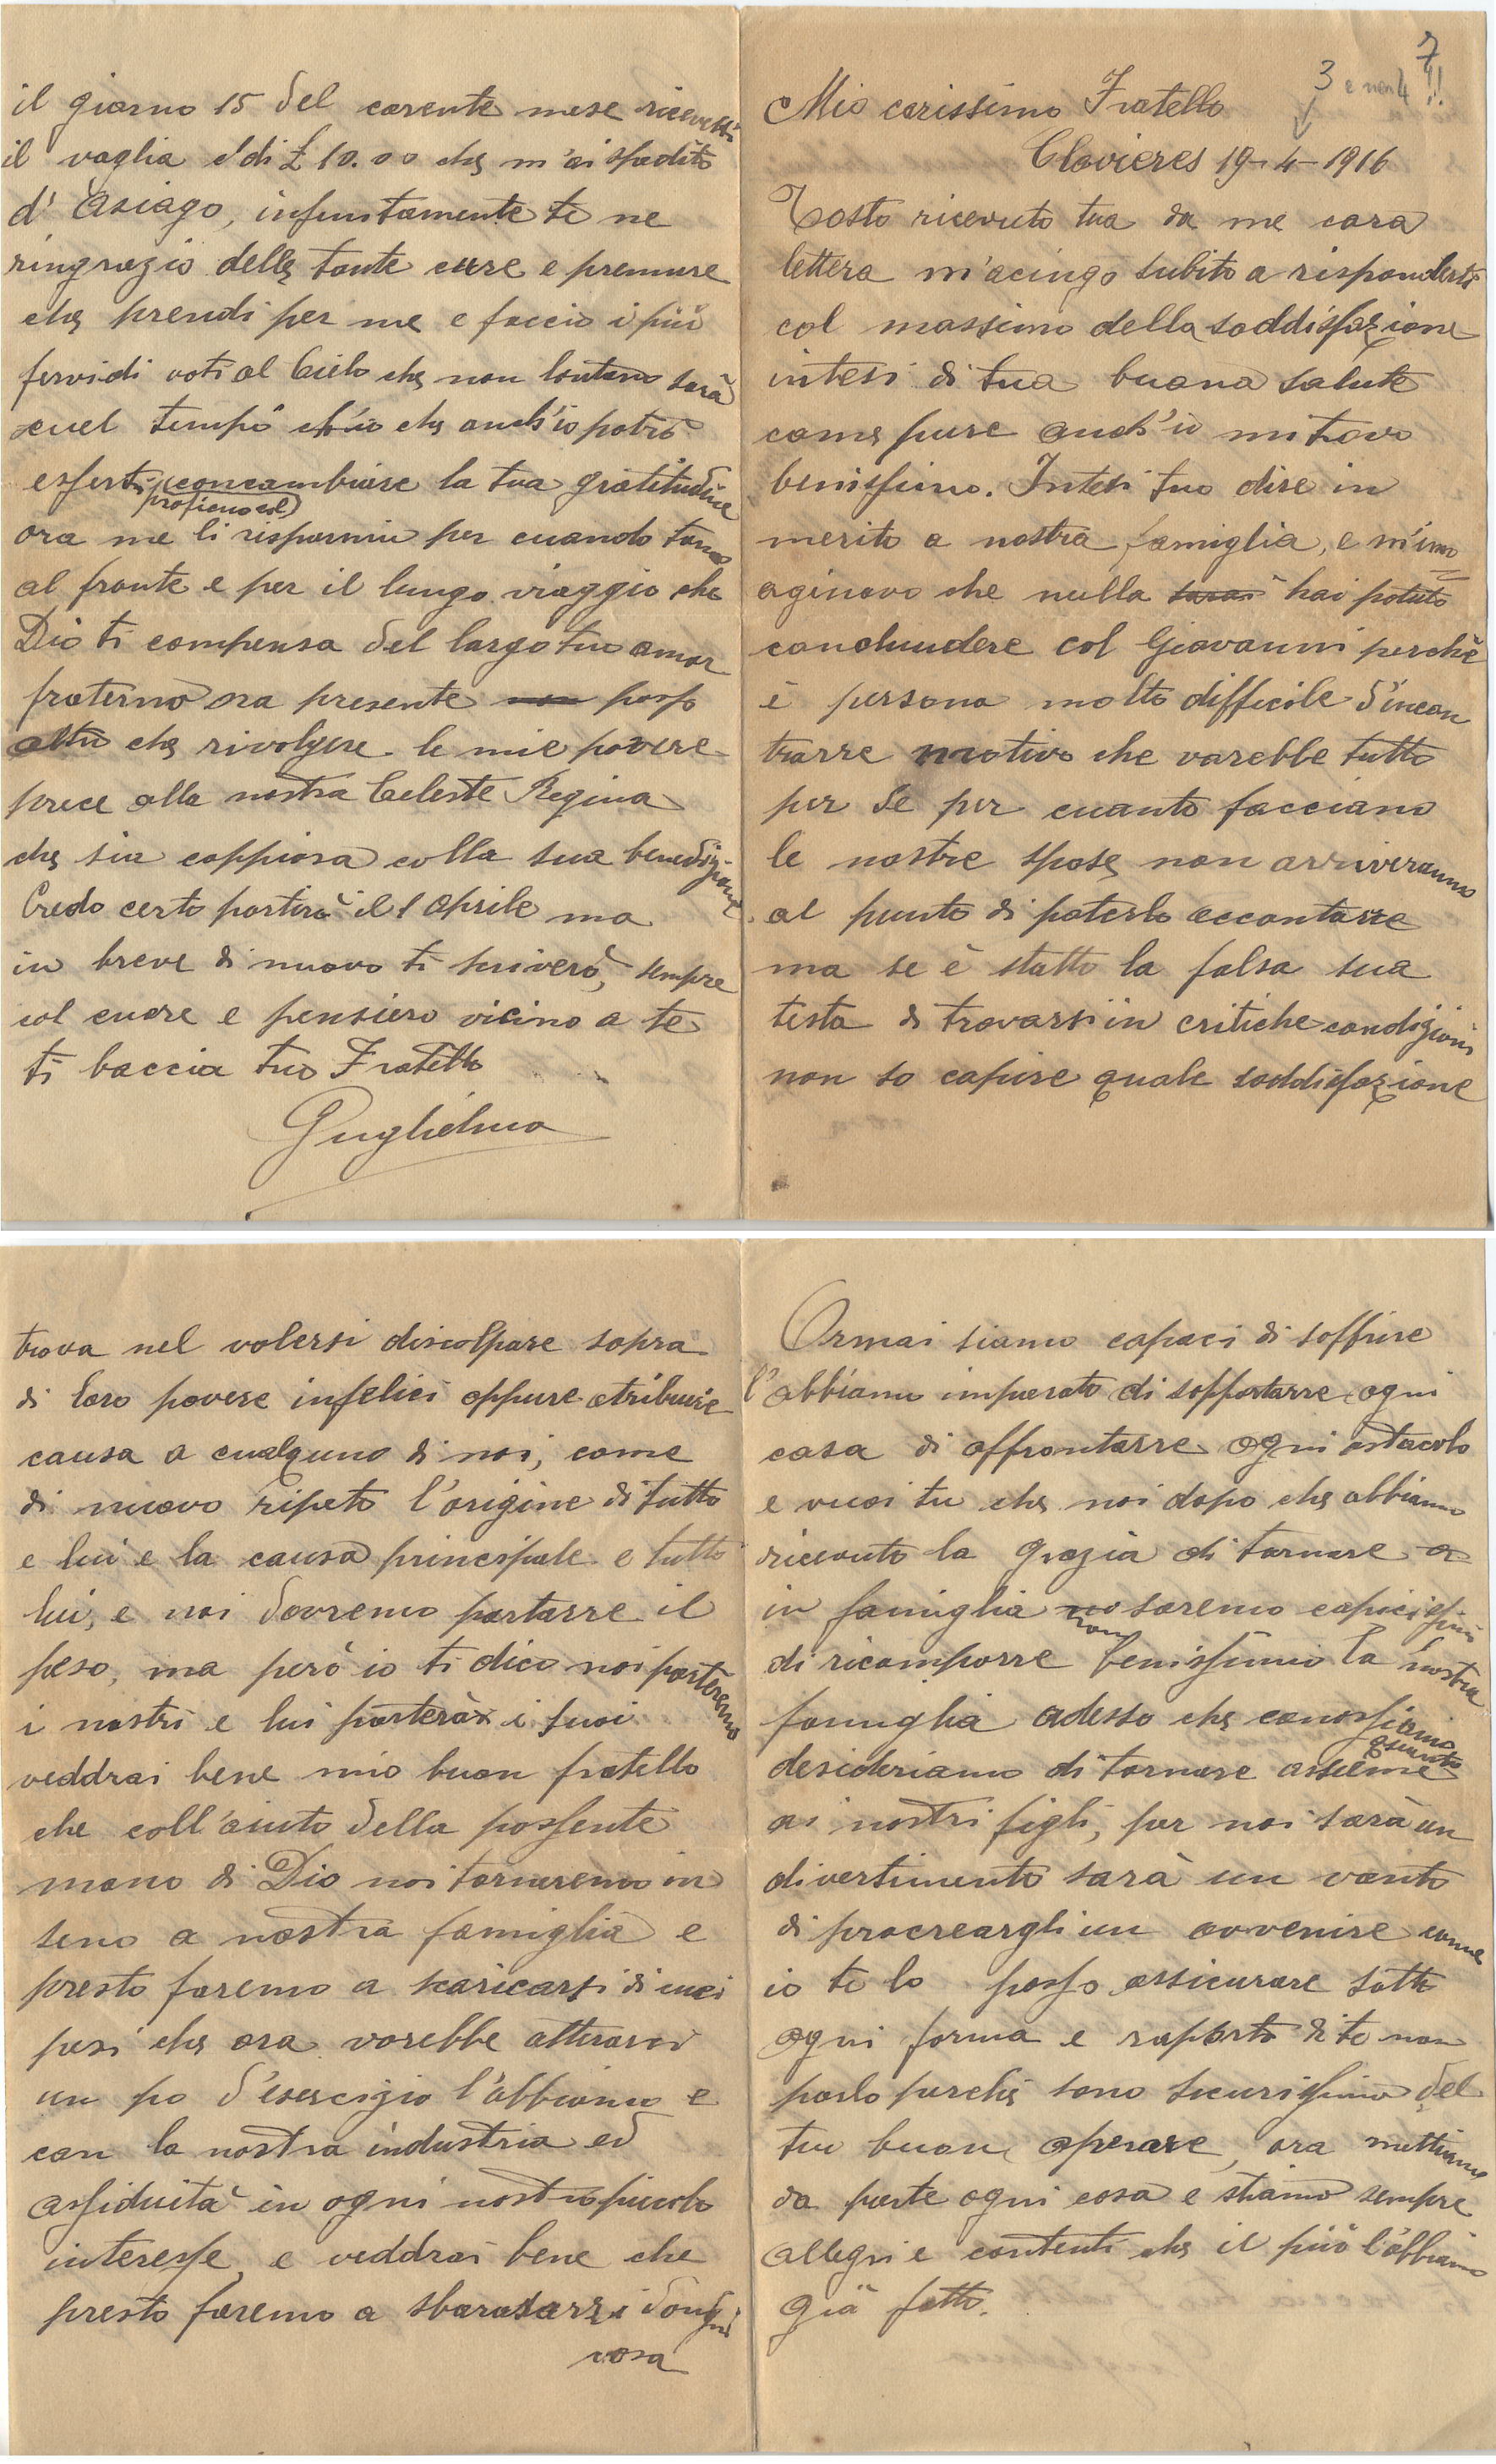 7
3 e non 4 !!
Mio carissimo Fratello
Clavieres 19-4-1916
Tosto ricevuto tua da me cara
lettera m'acingo subito a risponderti
col massimo della soddisfazione
intesi di tua buona salute
come pure anch'io mi trovo
benissimo. Intesi tuo dire in
merito a nostra famiglia, e m'imm
aginavo che nulla hai potuto
conchiudere col Giovanni perchè
è persona molto difficile d'incon
trarre motivo che varebbe tutto
per se per cuanto facciano
le nostre spose non arriveranno
al punto di poterlo accontarre
ma se è statto la falsa sua
testa di trovarsi in critiche condizioni
non so capire quale soddisfazione
trova nel volersi discolpare sopra
di loro povere infelici oppure atribuire
causa a cualquno di noi, come
di nuovo ripeto l'origine di tutto
e lui e la causa principale e tutto
lui, e noi dovremo portarre il
peso, ma però io ti dico noi porteremo
i nostri e lui porterà i suoi
veddrai bene mio buon fratello
che coll'aiuto della possente
mano di Dio noi torneremo in
seno a nostra famiglia e
presto faremo a scaricarsi di cuei
pesi che ora vorebbe atterarci
un po d'esercizio l'abbiamo e
con la nostra industria ed
assiduità in ogni nostro piccolo
interesse, e veddrai bene che
presto faremo a sbarasarzi d'ongni
cosa
Ormai siamo capaci di soffrire
l'abbiamo imparato di sopportarre ogni
cosa di affrontarre ogni ostacolo
e vuoi tu che noi dopo che abbiamo
ricevuto la grazia di tornare a
in famiglia non saremo capicissimi
di ricomporre benissimo la nostra
famiglia adesso che conossiamo
quanto
desideriamo di tornare assieme
ai nostri figli, per noi sarà un
divertimento sarà un vanto
di procreargli un avvenire come
io te lo posso assicurare sotto
ogni forma e rapporto di te non
parlo perchè sono sicurissimo del
tuo buon operare, ora mettiamo
da parte ogni cosa e stiamo sempre
allegri e contenti che il più l'abbiamo
già fatto.
il giorno 15 del corente mese ricevetti
il vaglia di £ 10.00 che m'ai spedito
d'Asiago, infinitamente te ne
ringrazio delle tante cure e premure
che prendi per me e faccio i più
fervidi voti al Cielo che non lontano sarà
cuel tempo ch'io che anch'io potrò
esserti concambiare la tua gratitudine
proficuo col
ora me li risparmio per cuando torno
al fronte e per il lungo viaggio che
Dio ti compensa del largo tuo amor
fraterno ora presente non posso
altro che rivolgere le mie povere
prece alla nostra Celeste Regina
che sia coppiosa colla sua benedizione
Credo certo partirò il 1 aprile ma
in breve di nuovo ti scriverò, sempre
col cuore e pensiero vicino a te
ti baccia tuo Fratello
Guglielmo